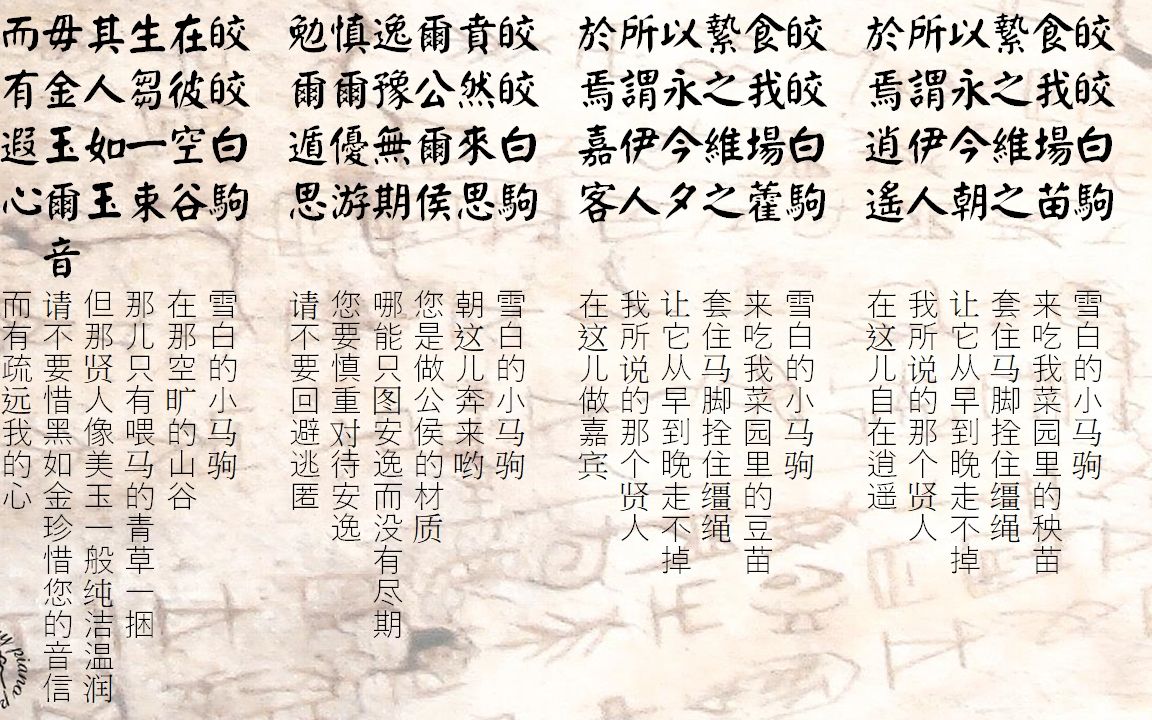 皎皎白駒
食我場苗
縶之維之
以永今朝
所謂伊人
於焉逍遙
雪白的小马驹
来吃我菜园里的秧苗
套住马脚拴住缰绳
让它从早到晚走不掉
我所说的那个贤人
在这儿自在逍遥
皎皎白駒
食我場藿
縶之維之
以永今夕
所謂伊人
於焉嘉客
雪白的小马驹
来吃我菜园里的豆苗
套住马脚拴住缰绳
让它从早到晚走不掉
我所说的那个贤人
在这儿做嘉宾
皎皎白駒
賁然來思
爾公爾侯
逸豫無期
慎爾優游
勉爾遁思
雪白的小马驹
朝这儿奔来哟
您是做公侯的材质
哪能只图安逸而没有尽期
您要慎重对待安逸
请不要回避逃匿
皎皎白駒
在彼空谷
生芻一束
其人如玉
毋金玉爾音
而有遐心
雪白的小马驹
在那空旷的山谷
那儿只有喂马的青草一捆
但那贤人像美玉一般纯洁温润
请不要惜黑如金珍惜您的音信
而有疏远我的心
piano